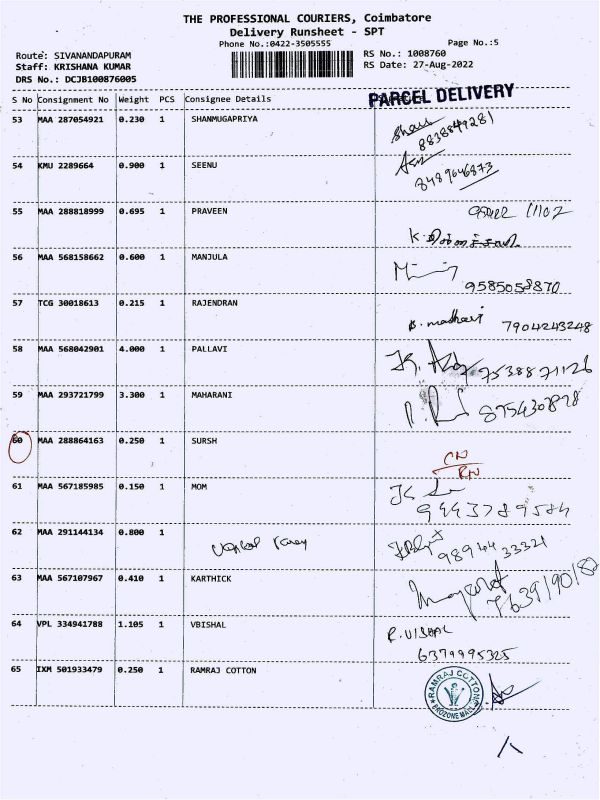 THE PROFESSIONAL COURIERS, Coimbatore
Delivery Runsheet - SPT
Phone No.:0422-3505555 Page No.:5
Route: SIVANANDAPURAM RS No.: 1008760
Staff: KRISHANA KUMAR RS Date: 27-Aug-2022
DRS No.: DCJB100876005
PARCEL DELIVERY
S No Consignment No Weight PCS Consignee Details
53 MAA 287054921 0.230 1 SHANMUGAPRIYA
8838849281
54 KMU 2289664 0.900 1 SEENU
8489046873
55 MAA 288818999 0.695 1 PRAVEEN
56 MAA 568158662 0.600 1 MANJULA
9585058870
57 TCG 30018613 0.215 1 RAJENDRAN
B. madhavi 7904243248
58 MAA 568042901 4.000 1 PALLAVI
7538871126
59 MAA 293721799 3.300 1 MAHARANI
8754307878
60 MAA 288864163 0.250 1 SURSH
CN
RN
61 MAA 567185985 0.150 1 MOM
9443789584
62 MAA 291144134 0.800 1
98944 33321
63 MAA 567107967 0.410 1 KARTHICK
64 VPL 334941788 1.105 1 VBISHAL
R. VISHAL
6379995325
65 IXM 501933479 0.250 1 RAMRAJ COTTON
RAMRAJ COTTON
BROZONE MALL